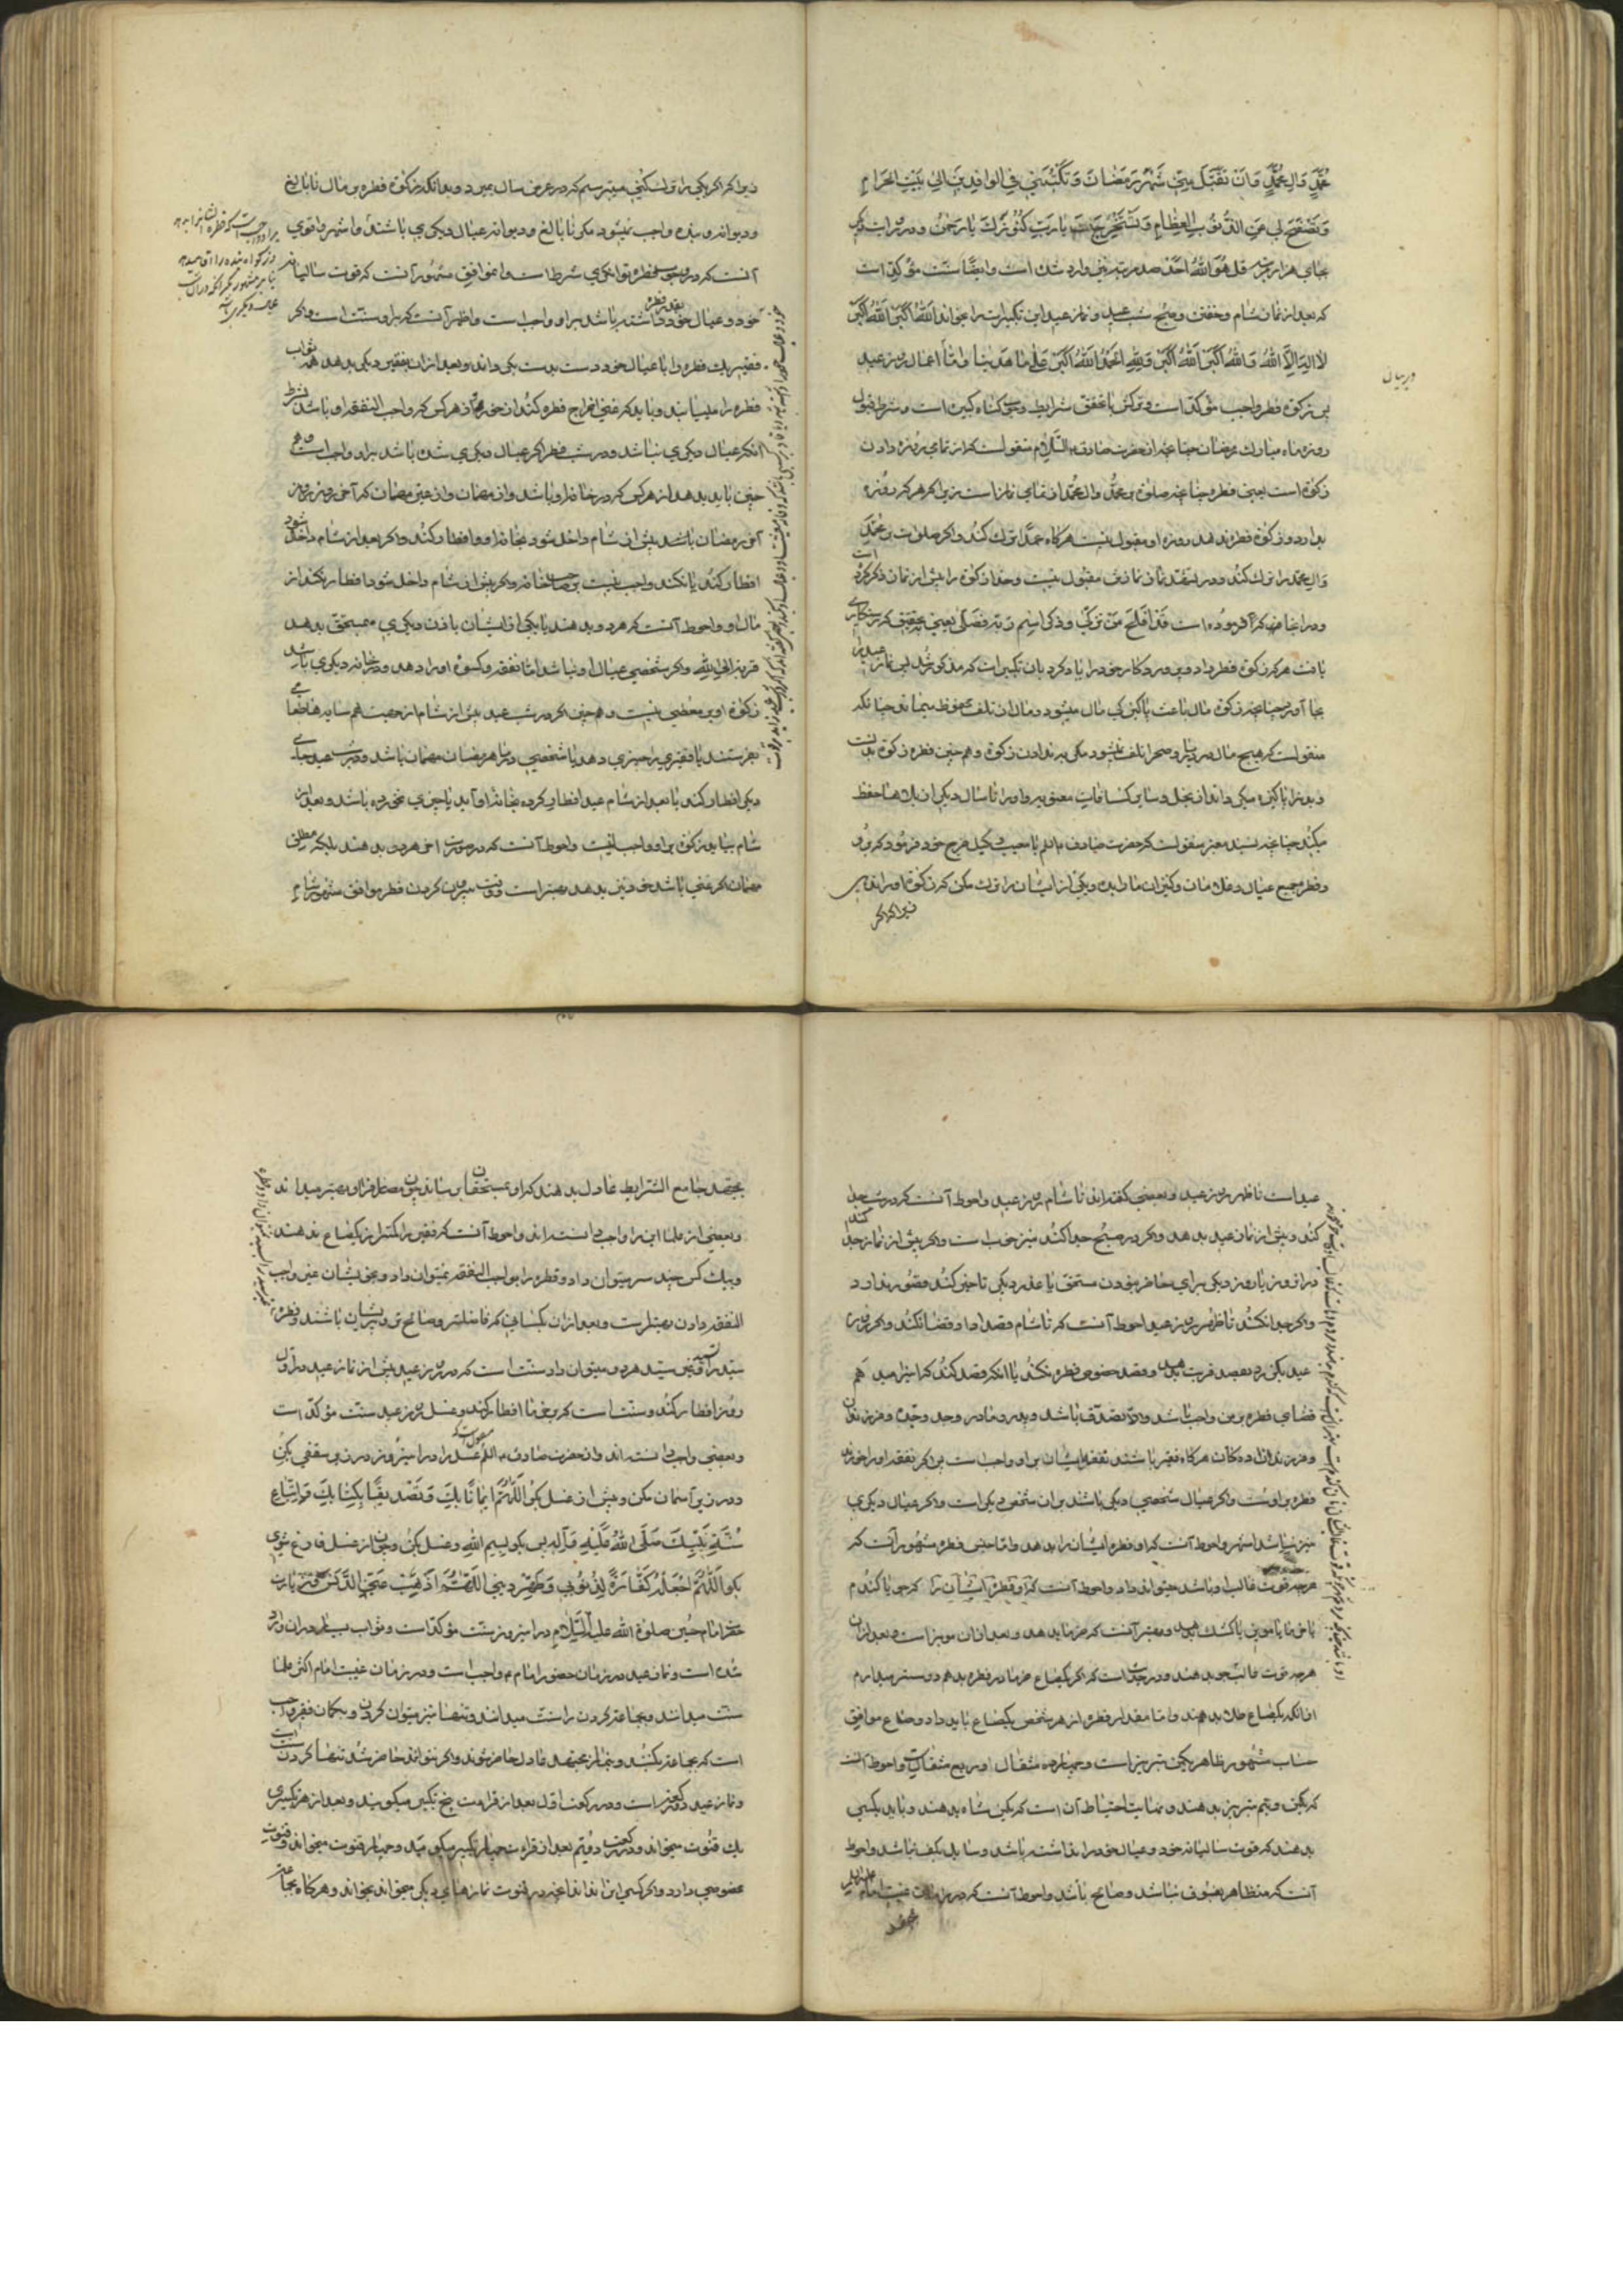 مُحَمَّدٍ وَالِ مُحَمَّدٍ وَاَنْ تَقَبَّلَ مِنّی شَهْرَ رَمَضَانَ وَتَكْتُبَنی فِی الوافِدینَ اِلیٰ بَیْتِكَ الحَرَامِ
وَتَصْفَحَ لی عَنِ الذُّنُوبِ العِظَامِ وَتَسْتَخْرِجَ یَارَبِّ كُنُوزَكَ یَا رَحمٰنُ و در
هزار مرتبه قل هُوَ اللهُ اَحَدٌ صد مرتبه نیز وارد شده است وایضًا سنّت مؤکّد است
که بعد از نماز شام و خفتن و صبح شب عید و نماز عید این تکبیرات را بخواند اَللهُ اَکْبَرُ اَللهُ اَکْبَرُ
لا اِلٰهَ اِلَّا اللهُ وَاللهُ اَکْبَرُ اَللهُ اَکْبَرُ وَلِلّٰهِ الحَمْدُ اَللهُ اَکْبَرُ عَلیٰ مَا هَدٰینَا و امّا اعمال روز عید
در بیان
پس زکوة فطر واجب مؤکّد است و ترکش با تحقق شرایط وجوب گناه کبیره است و شرط قبول
روزه ماه مبارك رمضان چنانچه از حضرت صادق علیه السّلام منقولست که از تمامی روزه دادن
زکوة است یعنی فطره چنانچه صلوة بر محمّد وال محمّد از تمامی نماز است زیرا که هر که روزه
بدارد و زکوة فطره ندهد روزه او مقبول نیست هر گاه عمدًا ترك کند و اگر صلوات بر محمّد
وال محمّد را ترك کند در تشهّد نماز نمازش مقبول نیست و خدا زکوة را پیش از نماز ذکر کرده است
و در انجا که فرموده است قَدْ اَفْلَحَ مَنْ تَزَکّٰی وَذَکَرَ اسْمَ رَبِّه فَصَلّٰی یعنی بتحقیق که رستگاری
یافت هر که زکوة فطر داد و پروردکار خود را یاد کرد بان تکبیرات که مذکور شد پس نماز عید را
بجا آورد چنانچه زکوة مال باعث پاکیزکی مال میشود و مال از تلف محفوظ میماند چنانکه
منقولست که هیچ مال در دریا و صحرا تلف نمیشود مکر به ندادن زکوة و همچنین فطره زکوة بدنست
و بدن را پاکیزه میکرداند از بخل و سایر کثافات معنویه و او را تا سال دیکر از بلاها حفظ
میکند چنانچه بسند معتبر منقولست که حضرت صادق علیه السلام با معتب وکیل خرج خود فرمود که برو
و فطره جمیع عیال و غلامان و کنیزان ما را بده و یکی از ایشان را ترك مکن که زکوة او را ندهی
زیرا که اگر
زیرا که اگر یکی را ترك کنی میترسم که در عرض سال بمیرد و بدانکه زکوة فطره بر مال نابالغ
و دیوانه و بنده واجب نمیشود مکر نابالغ و دیوانه عیال دیکری باشند و اشهر و اقوی
آنست که در وجوب فطره توانکری شرطاست و موافق مشهور آنست که قوت سالیانه
خود و عیال خود داشته باشد بر او واجب است و اظهر آنست که بر او سنّت است و اکر
فقیر یك فطره را با عیال خود دست بدست بکرداند و بعد از ان بفقیر دیکر بدهد همه ثواب
فطره را مییابند و باید که غنی اخراج فطره کند از خود و از هر کس که واجب النفقه او باشد بشرط
آنکه عیال دیکری نباشد و در شب فطر اکر عیال دیکری شده باشد بر او واجب است و هم
چنین باید بدهد از هر کس که در خانه او باشد و از مهمان و از غیر مهمان که آخر روز
آخر رمضان باشد پیش از شام داخل شود بخانه او و افطار کند و اکر بعد از شام داخل شود
افطار کند یا نکند واجب نیست بر صاحب خانه و اکر پیش از شام داخل شود افطار نکند از
مال او و احوط آنست که هر دو بدهند یا یکی از ایشان باذن دیکری بمستحق بدهد
قربة الی الله و اکر شخصی عیال او نباشد امّا نفقه و کسوه او را دهد و در خانه دیکری باشد
زکوة او بر معطی نیست و همچنین اکر در شب عید پیش از شام از جهت همسایه ها طعامی
بفرستند یا فقیری را چیزی دهد یا شخصی در ماه رمضان مهمان باشد و در شب عید جای
دیکر افطار کند یا بعد از شام عید افطار کرده بخانه او آید یا چیزی نخورده باشد و بعد از
شام بیاید زکوة بر او واجب نیست و احوط آنست که در صورت اخر هر دو بدهند بلکه مطلق
مهمان اکر غنی باشد خود نیز بدهد بهتر است و وقت بیرون کردن فطره موافق مشهور شام
عید است تا ظهر روز عید و بعضی کفته اند تا شام روز عید و احوط آنست که در شب جدا
کند و پیش از نماز عید بدهد و اکر در صبح جدا کند نیز خوب است و اکر پیش از نماز جدا کند
در ان روز یا روز دیکر برای حاضر نبودن مستحق یا عذر دیکر تاخیر کند قصور ندارد
و اکر جدا نکند تا ظهر روز عید احوط آنست که تا شام قصد ادا و قضا نکند و اکر روز
عید بکذرد بقصد قربت بدهد و قصد خصوص فطره نکند یا انکه قصد کند که اینرا میدهم
قضای فطره بر من واجب باشد والا تصدّق باشد و پدر و مادر و جد و جدّه و فرزندان
و فرزند زاده کان هر کاه فقیر باشند نفقه ایشان بر او واجب است پس اکر نفقه او را خورند
فطره بر اوست و اکر عیال شخصی دیکر باشند بر ان شخص دیکر است و اکر عیال دیکری
نیز نباشد اشهر و احوط آنست که او فطره ایشان را بدهد و امّا جنس فطره مشهور آنست که
هر چه قوت غالب او باشد میتواند داد و احوط آنست که او فطره ایشان را که جو یا کندم
یا خرما یا مویز یا کشك بدهد و بهتر آنست که خرما بدهد و بعد از ان مویز است و بعد از ان
هر چه قوت غالب خود بدهند و در حدیث است که اکر یکصاع خرما در فطره بدهم دوستر میدارم
از انکه یکصاع طلا بدهند و امّا مقدار فطره از هر شخص یکصاع باید داد و صاع موافق
حساب مشهور ظاهر یکمن تبریز است و چهارده مثقال و ربع مثقال و احوط آنست
که یکمن و نیم تبریز بدهند و نهایت احتیاط آن است که یکمن شاه بدهند و باید بکسی
بدهند که قوت سالیانه خود و عیال خود را نداشته باشد و سایل بکف نباشد و احوط
آنست که متظاهر بفسوق نباشد و صالح باشد و احوط آنست که در زمان غیبت امام علیه السلام
بمجتهد
بمجتهد جامع الشرایط عادل بدهند که او بمستحقان برساند چون مصرف را او بهتر میداند
و بعضی از علما این را واجب دانسته اند و احوط آنست که فقیر را کمتر از یکصاع ندهند
و بیك کس چند سر میتوان داد و فطره را بواجب النفقه نمیتوان داد و بخویشان غیر واجب
النفقه دادن بهتر است و بعد از ان بکسانی که فاضلتر و صالحتر و پریشانتر باشند و فطره
سیّد را بغیر سیّد هر دو میتوان داد سنّت است که در روز عید پیش از نماز عید در اول
روز افطار کند و سنّت است که بخرما افطار کند و غسل روز عید سنّت مؤکّد است
و بعضی واجب دانسته اند و از حضرت صادق علیه السلام منقول است که غسل را در این روز در زیر سقفی بکن
و در زیر آسمان مکن و پیش از غسل بکو اَللّٰهُمَّ اِیمَانًا بِكَ وَتَصْدِیقًا بِكِتَابِكَ وَاتِّبَاعَ
سُنَّةِ نَبِیِّكَ صَلَّی اللهُ عَلَیْهِ وَآلِه پس بکو بسم الله و غسل بکن و چون از غسل فارغ شوی
بکو اَللّٰهُمَّ اجْعَلْهُ كَفَّارَةً لِذُنُوبی وَطَهِّرْ دینی اَللّٰهُمَّ اَذْهِبْ عَنِّی الدَّنَسَ و زیارت
حضرت امام حسین صلوة الله علیه السّلام در این روز سنّت مؤکّد است و ثواب بسیار در ان وارد
شده است و نماز عید در زمان حضور امام ع واجب است و در زمان غیبت امام اکثر علما
سنّت میدانند و بجماعت کردن را سنّت میدانند و تنها نیز میتوان کردن و بکمان فقیر واجب
است که بجماعت بکنند و بنماز مجتهد عادل حاضر شوند و اکر نتوانند حاضر شد تنها کردن سنّت است
و نماز عید دو رکعت است و در رکعت اول بعد از قراءت پنج تکبیر میکویند و بعد از هر تکبیری
یك قنوت میخواند و در رکعت دویّم بعد از قراءت چهار تکبیر میکوید و چهار قنوت میخواند و قنوت
مخصوصی دارد و اکر کسی انرا نداند انچه در قنوت نمازهای دیکر میخواند بخواند و هر کاه بجماعت